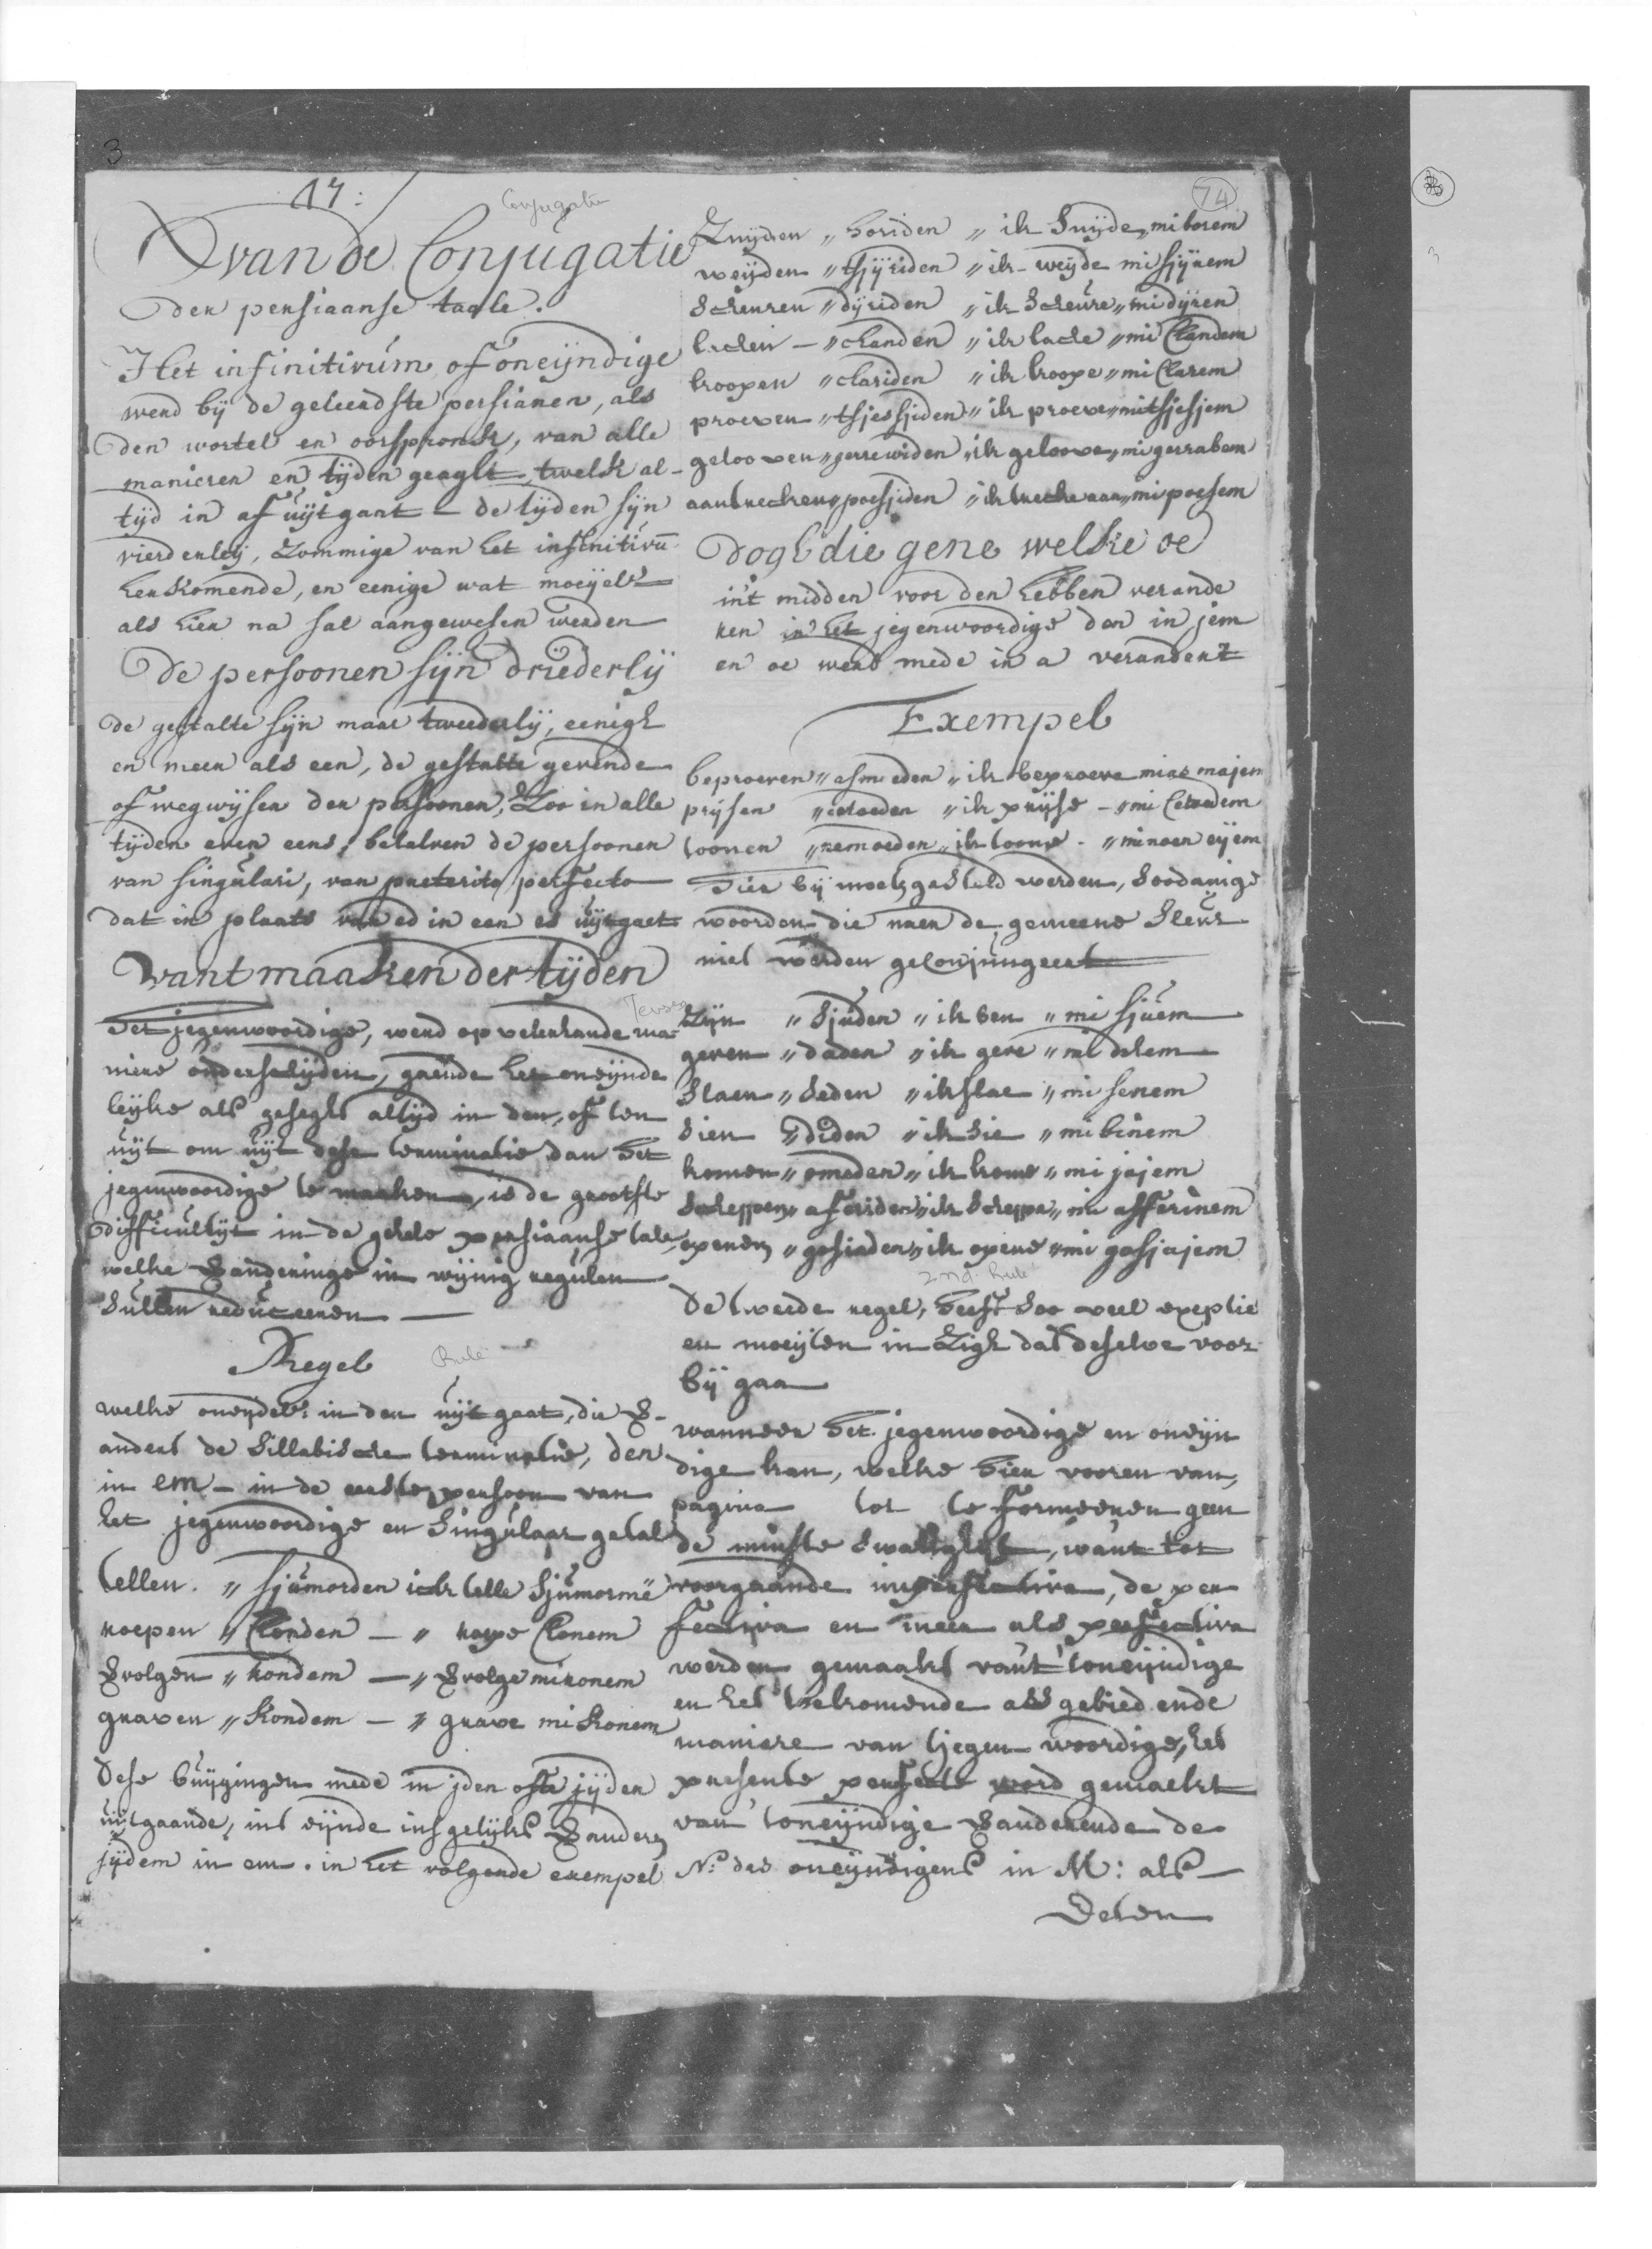 3
17:
Conjugatie
74
van de Conjugatie
der persiaanse taale.
Het infinitivum, of oneijndige
werd bij de geleerdste persianen, als
den wortel en oorspronck, van alle
manieren en tijden geagt, twelk al-
tijd in af uijtgaat – de tijden sijn
vierderleij, zommige van het infinitivū
herkomende, en eenige wat moeijel:
als hier na sal aangewesen werden
De persoonen sijn driederlij
de gestalte sijn maar tweederlij, eenigh
en meer als een, de gestalte gevende
of wegwijser der persoonen, zoo in alle
tijden even eens, behalven de persoonen
van singulari, van preterito perfecto
dat in plaats van ed in een es uijtgaet
Want maaken der tijden
Tenses
Het jegenwoordige, werd op velerhande ma-
niere onderscheijden, gaende het oneijnde
leijke als gesegt altijd in den, of ten
uijt om uijt dese terminatie dan het
jegenwoordige te maaken, is de grootste
difficultijt in de gehele persiaanse tale
welke veranderinge in wijnig regulen
sullen reduceeren
Regel
Rule
welke oneijdel: in den uijt gaat, die v-
andert de sillabische terminatie, den
in em – in de eerste persoon van
het jegenwoordige en singulaar getal
tellen. „ sjumorden ick telle sjumormē
roepen „ Chonden – „ roepe Chonem
volgen „ kondem – „ volge mikonem
graven „ kondem – „ grave mi konem
Dese buijgingen mede in jden ofte jijden
uijtgaande, int eijnde insgelijks verander
jijdem in em. in het volgende exempel
Snijden „ boriden „ ik snijde „ mi borem
weijden „ tsjijriden „ ik weijde mi sjijrem
scheuren „ dijriden „ ik scheure „ mi dijren
lachen – „ chanden „ ik lache „ mi Chandem
koopen „ chariden „ ik koope „ mi Charem
proeven „ tsjessjiden „ ik proeve „ mitsjesjem
gelooven „ gerrewiden „ ik geloove „ mi gerrabem
aantrecken „ poesjiden „ ik trecke aan „ mi poesem
Dogh die gene welke oe
int midden voor den hebben verande
ren in het jegenwoordige den in jem
en oe werd mede in a verandert
Exempel
beproeven „ asmoeden „ ik beproeve mias majem
prijsen „ „ ik prijse – „ mi
toonen „ nemoeden „ ik toone – „ minaen eijem
Hier bij moet gesteld werden, soodanige
woorden die naer de gemeene sleur
niet werden geconjungeert
Zijn „ sjuden „ ik ben „ mi sjuem
geven „ daden „ ik geve „ mi dehem
slaen „ seden „ ik slae „ mi senem
sien „ diden „ ik sie „ mi binem
komen „ omeden „ ik kome „ mi jajem
scheppen „ aferiden „ ik scheppe „ mi afferinem
openen „ gosiaden „ ik opene „ mi gosjajem
2nd. Rule
De tweede regel, heeft soo veel exeptie
en moeijten in zigh dat deselve voor
bij gaa
wanneer het jegenwoordige en oneijn
dige kan, welke hier vooren van,
pagina tot te formeeren geen
de minste swarigheijt, want tot
voorgaande imperfectiva, de per
fectiva en meer als perfectiva
werden gemaakt vant toneijndige
en het toekomende als gebied ende
maniere van tjegen woordige, het
presente perfecte word gemaekt
van toneijndige veranderende de
N: des oneijndigens in M: als
Deden